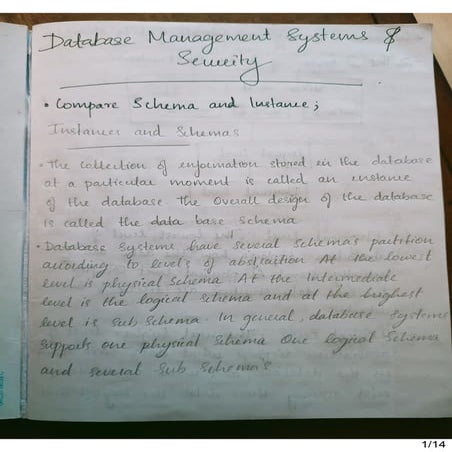 Database Management Systems &
Security
• Compare Schema and Instance;
Instances and Schemas
• The collection of information stored in the database
at a particular moment is called an instance
of the database The overall design of the database
is called the data base schema
• Database Systems have several schemas partition
according to levels of abstraction At the lowest
level is physical schema At the Intermediate
level is the logical schema and at the highest
level is sub schema. In general, database systems
supports one physical schema One logical schema
and several sub schema's
1/14